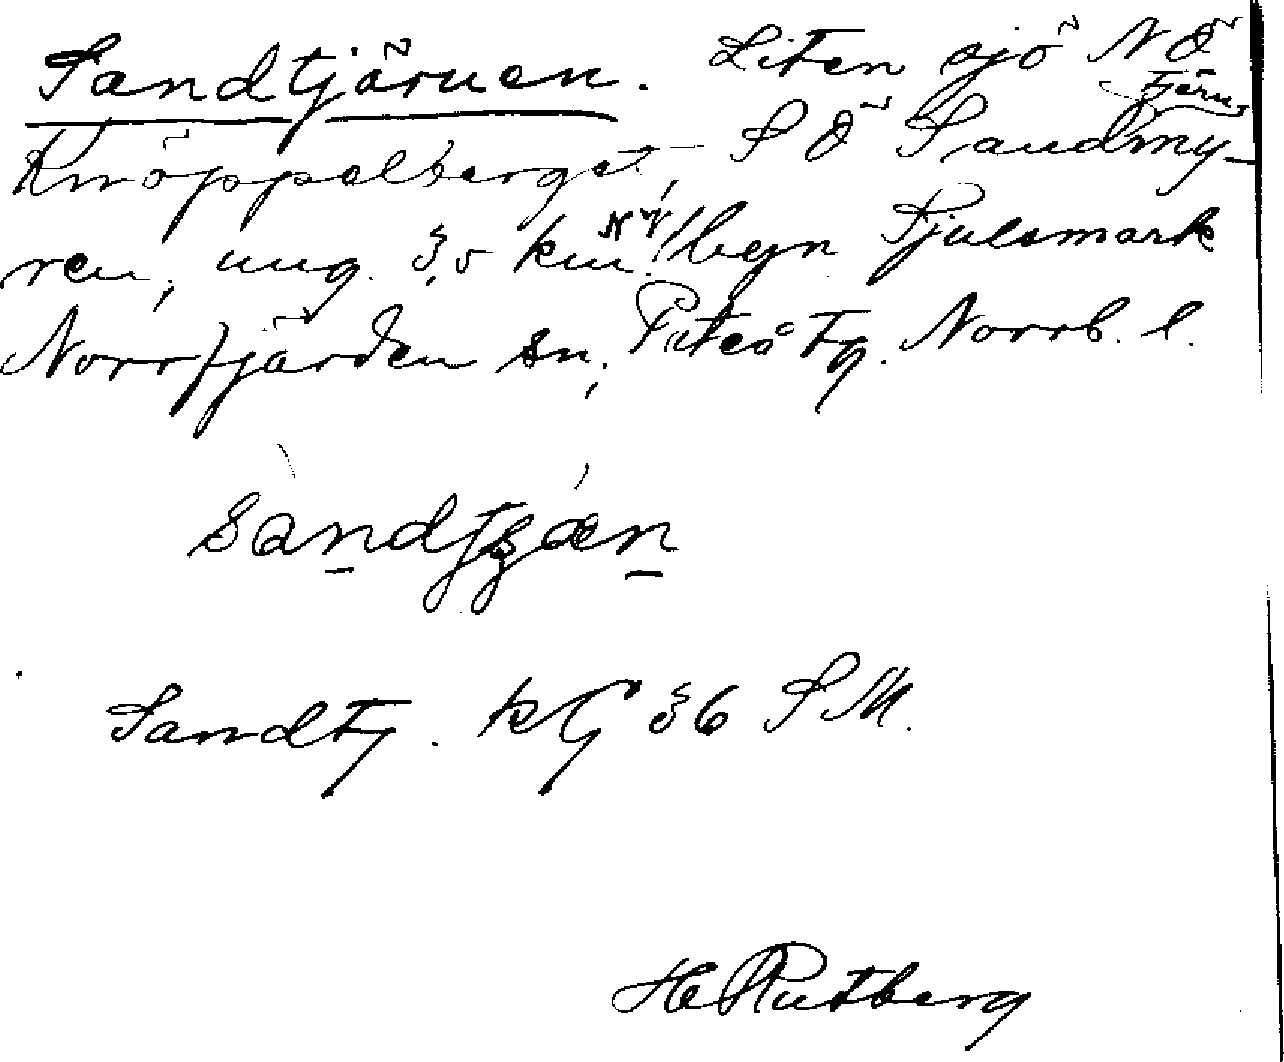 Sandtjärnen. Liten sjö NÖ
Knöppelberget, SÖ Sandmy-
tjärn
ren, ung. 3,5 km NV/ byn Sjulsmark
Norrfjärden sn, Piteå tg. Norrb. l.
Sandtj. KG 36 SM.
H Rutberg